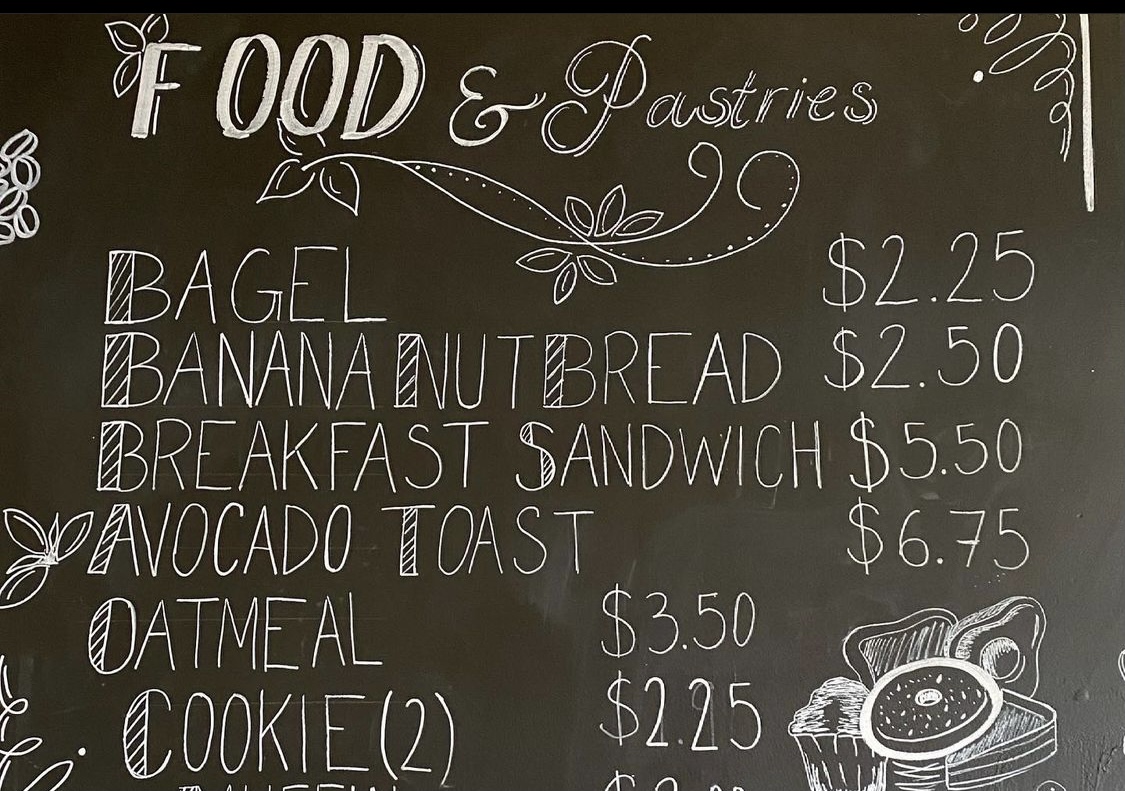 FOOD & Pastries
BAGEL $2.25
BANANA NUT BREAD $2.50
BREAKFAST SANDWICH $5.50
AVOCADO TOAST $6.75
OATMEAL $3.50
COOKIE (2) $2.25